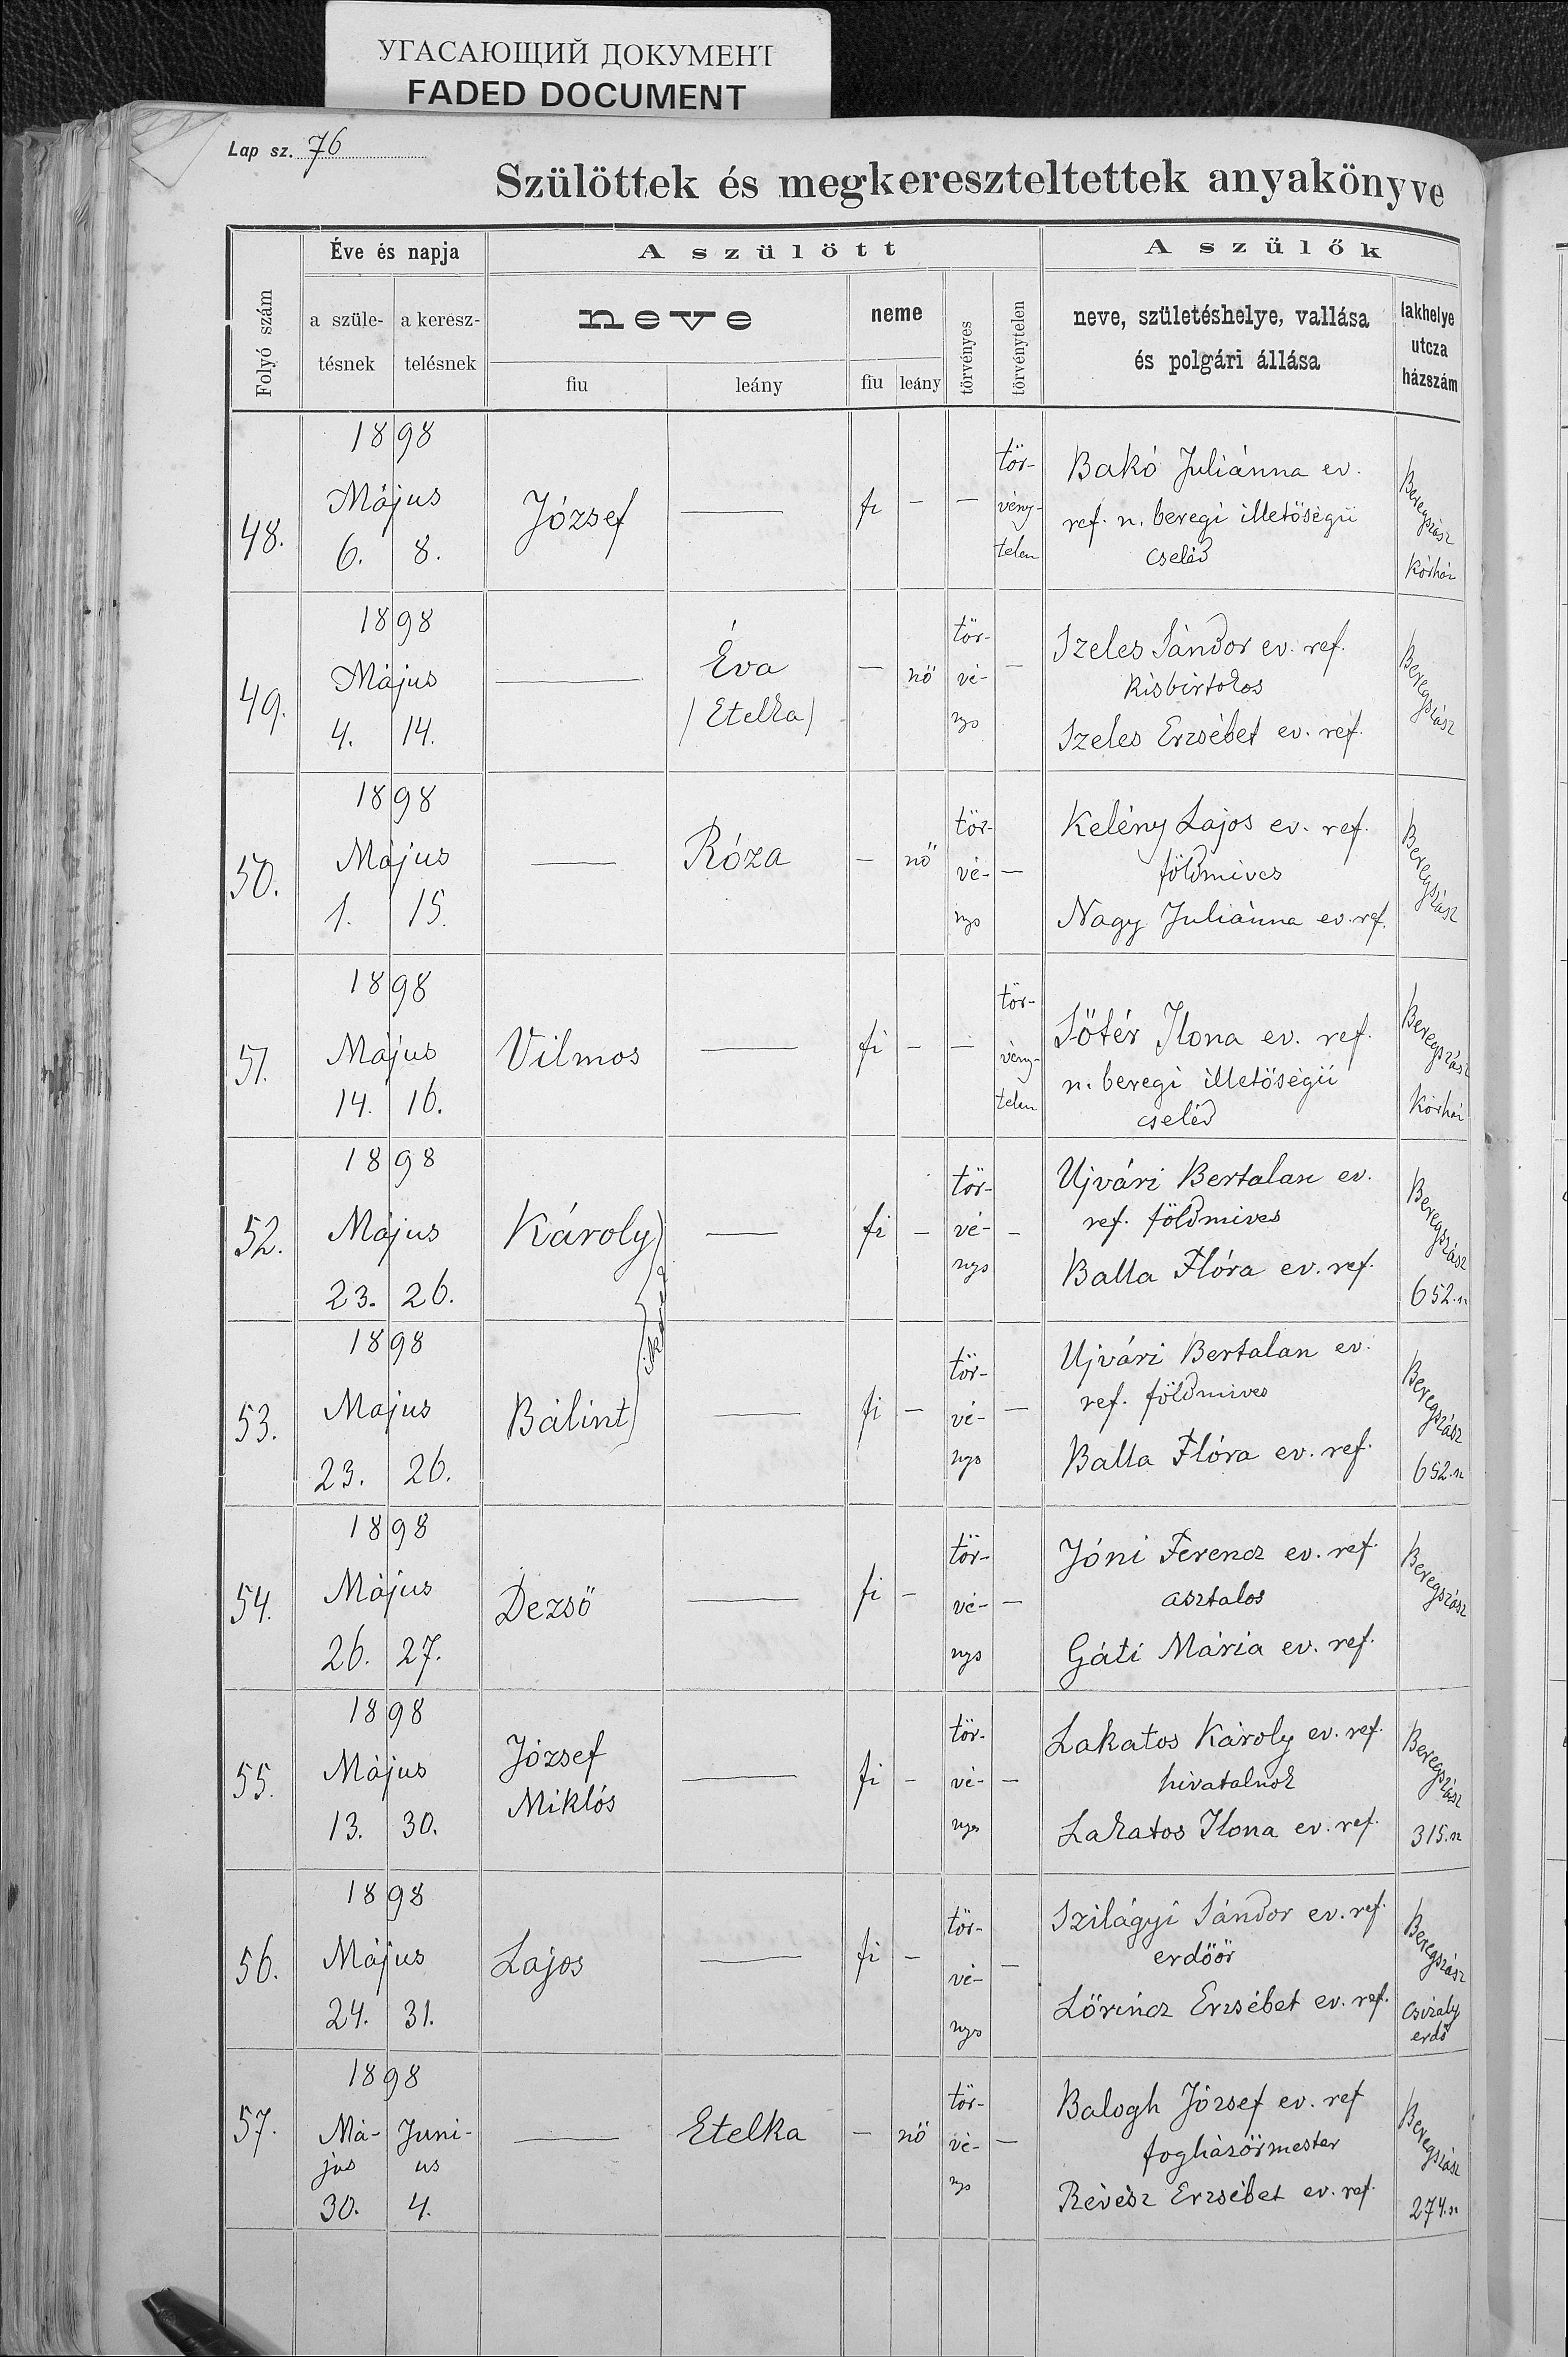 УГАСАЮЩИЙ ДОКУМЕНТ
FADED DOCUMENT
Lap sz. 76
Szülöttek és megkereszteltettek anyakönyve
Folyó szám
Éve és napja
a születésnek
a keresztelésnek
A szülött
neve
fiu
leány
neme
fiu
leány
törvényes
törvénytelen
A szülők
neve, születéshelye, vallása
és polgári állása
lakhelye
utcza
házszám
48.
1898
Május
6. 8.
József
—
fi
—
—
tör-
vény-
telen
Bakó Juliánna ev.
ref. n. beregi illetőségü
cseléd
Beregszász
Kórház
49.
1898
Május
4. 14.
—
Éva
/Etelka/
—
nő
tör-
vé-
nys
—
Szeles Sándor ev. ref.
kisbirtokos
Szeles Erzsébet ev. ref.
Beregszász
50.
1898
Május
1. 15.
—
Róza
—
nő
tör-
vé-
nys
—
Kelény Lajos ev. ref.
földmives
Nagy Juliánna ev. ref.
Beregszász
51.
1898
Május
14. 16.
Vilmos
—
fi
—
—
tör-
vény-
telen
Sőtér Ilona ev. ref.
n. beregi illetőségü
cseléd
Beregszász
Kórház
52.
1898
Május
23. 26.
Károly
—
fi
—
tör-
vé-
nys
—
Ujvári Bertalan ev.
ref. földmives
Balla Flóra ev. ref.
Beregszász
652. n
53.
1898
Majus
23. 26.
Bálint
—
fi
—
tör-
vé-
nys
—
Ujvári Bertalan ev.
ref. földmives
Balla Flóra ev. ref.
Beregszász
652. n
54.
1898
Május
26. 27.
Dezső
—
fi
—
tör-
vé-
nys
—
Jóni Ferencz ev. ref.
asztalos
Gáti Mária ev. ref.
Beregszász
55.
1898
Május
13. 30.
József
Miklós
—
fi
—
tör-
vé-
nys
—
Lakatos Károly ev. ref.
hivatalnok
Lakatos Ilona ev. ref.
Beregszász
315. n
56.
1898
Május
24. 31.
Lajos
—
fi
—
tör-
vé-
nys
—
Szilágyi Sándor ev. ref.
erdőőr
Lőrincz Erzsébet ev. ref.
Beregszász
erdő
57.
1898
Má- Juni-
jus us
30. 4.
—
Etelka
—
nő
tör-
vé-
nys
—
Balogh József ev. ref
fogházőrmester
Révész Erzsébet ev. ref.
Beregszász
274. n